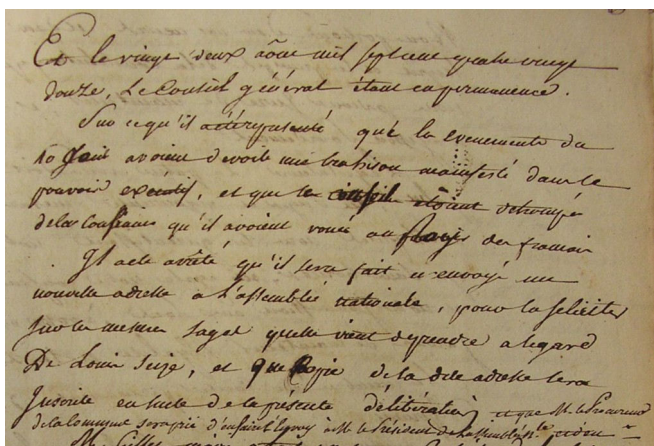 Et le vingt deux aôut mil sept cent quatre vingt
douze, Le Conseil général étant en permanence.
Sur ce qu'il a été représenté que les evenements du
10 aôut avoient devoilé une trahison manifesté dans le
pouvoir exécutif, et que le conseil étoient détrompé
de la confiance qu'il avoient voué au des francois
Il a été arrêté qu'il sera fait et envoyé une
nouvelle adresse a L'assemblée nationale, pour la feliciter
sur les mesures sages quelle vient de prendre a legard
De Louis Seize, et que copie de la dite adresse sera
Inscrite en suite de la présente délibération et que M. le Procureur
de la commune sera prié d'en faire l'envoy à M. le Président de L'assemblée N.le